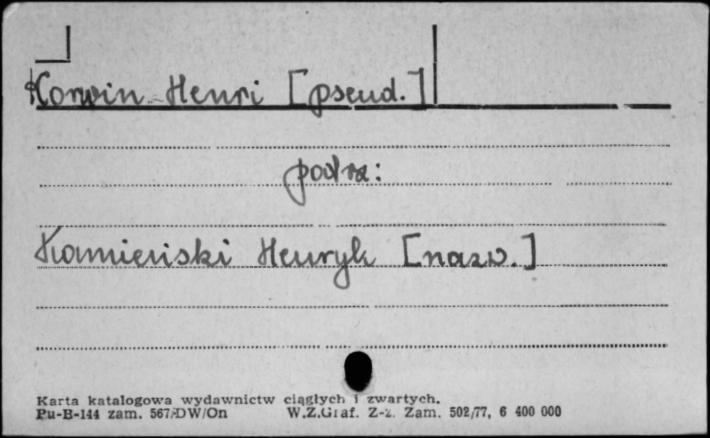 Korwin Henri [pseud.]
patrz:
Kamieński Henryk [nazw.]
Karta katalogowa wydawnictw ciągłych i zwartych.
Pu-B-144 zam. 567/DW/On W.Z.Graf. Z-z. Zam. 502/77, 6 400 000